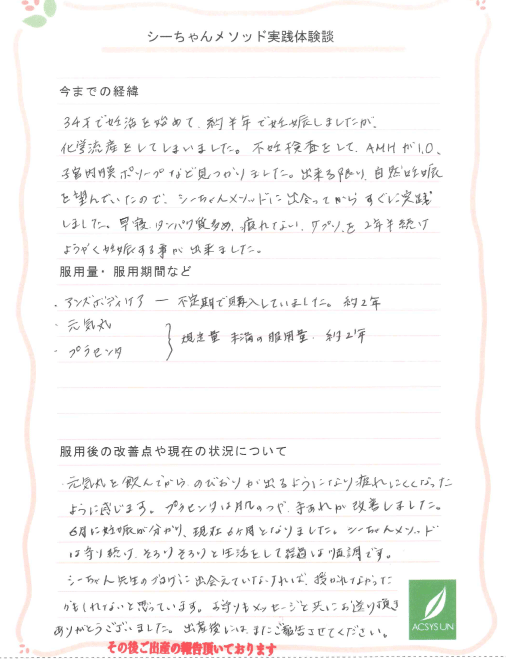 シーちゃんメソッド実践体験談
今までの経緯
34才で妊活を始めて、約半年で妊娠しましたが、
化学流産をしてしまいました。不妊検査をして、AMHが1.0、
子宮内膜ポリープなど見つかりました。出来る限り、自然妊娠
を望んでいたので、シーちゃんメソッドに出会ってからすぐに実践
しました。早寝、タンパク質多め、疲れない、サプリ、を2年半続け
ようやく妊娠する事が出来ました。
服用量・服用期間など
・アンズボディケア ー 不定期で購入していました。約2年
・元気丸
・プラセンタ
規定量 未満の服用量、約2年
服用後の改善点や現在の状況について
元気丸を飲んでから、のびおりが出るようになり疲れにくくなった
ように感じます。プラセンタは肌のつや、手あれが改善しました。
6月に妊娠が分かり、現在6ヶ月となりました。シーちゃんメソッド
は守り続け、そろりそろりと生活をして経過は順調です。
シーちゃん先生のブログに出会えていなければ、授かれてなかった
かもしれないと思っています。お守りもメッセージと共にお送り頂き
ありがとうございました。出産後には、またご報告させてください。
ACSYSIJN
その後ご出産の報告頂いております